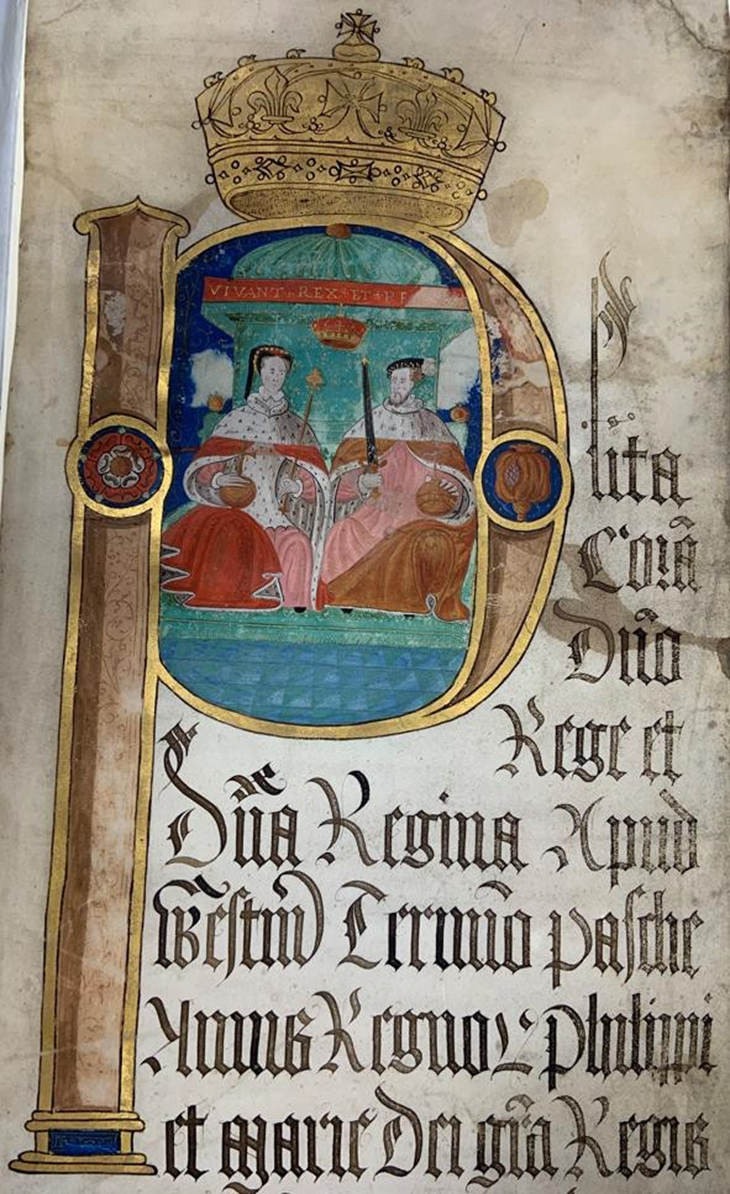 VIVANT · REX · ET · RE
lita
Cora͂
Dn͂o
Rege et
Dn͂a Regina Apud
Westm̃ Termino pasche
Annis Regno⁊ Philippi
et Marie Dei gr͂a Regis